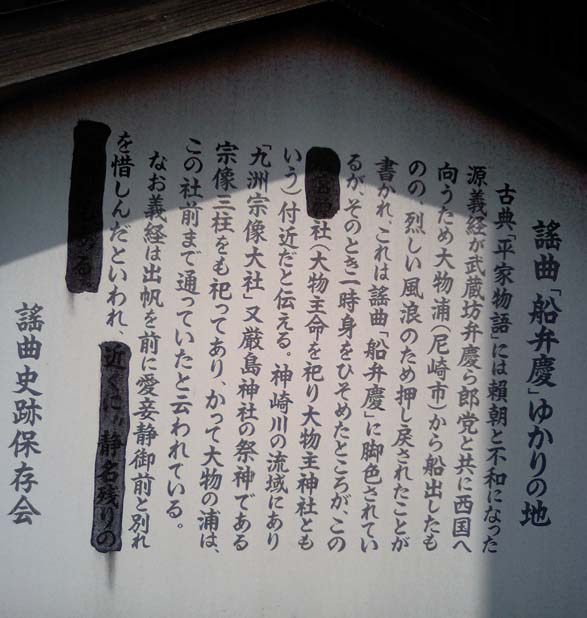 謡曲「船弁慶」ゆかりの地
古典「平家物語」には頼朝と不和になった
源義経が武蔵坊弁慶ら郎党と共に西国へ
向うため大物浦(尼崎市)から船出したも
のの、烈しい風浪のため押し戻されたことが
書かれ、これは謡曲「船弁慶」に脚色されてい
るが、そのとき一時身をひそめたところが、この
社(大物主命を祀り大物主神社とも
いう)付近だと伝える。神崎川の流域にあり
「九洲宗像大社」又厳島神社の祭神である
宗像三柱をも祀ってあり、かって大物の浦は、
この社前まで通っていたと云われている。
なお義経は出帆を前に愛妾静御前と別れ
を惜しんだといわれ、近くに〃静名残りの
ある
謡曲史跡保存会